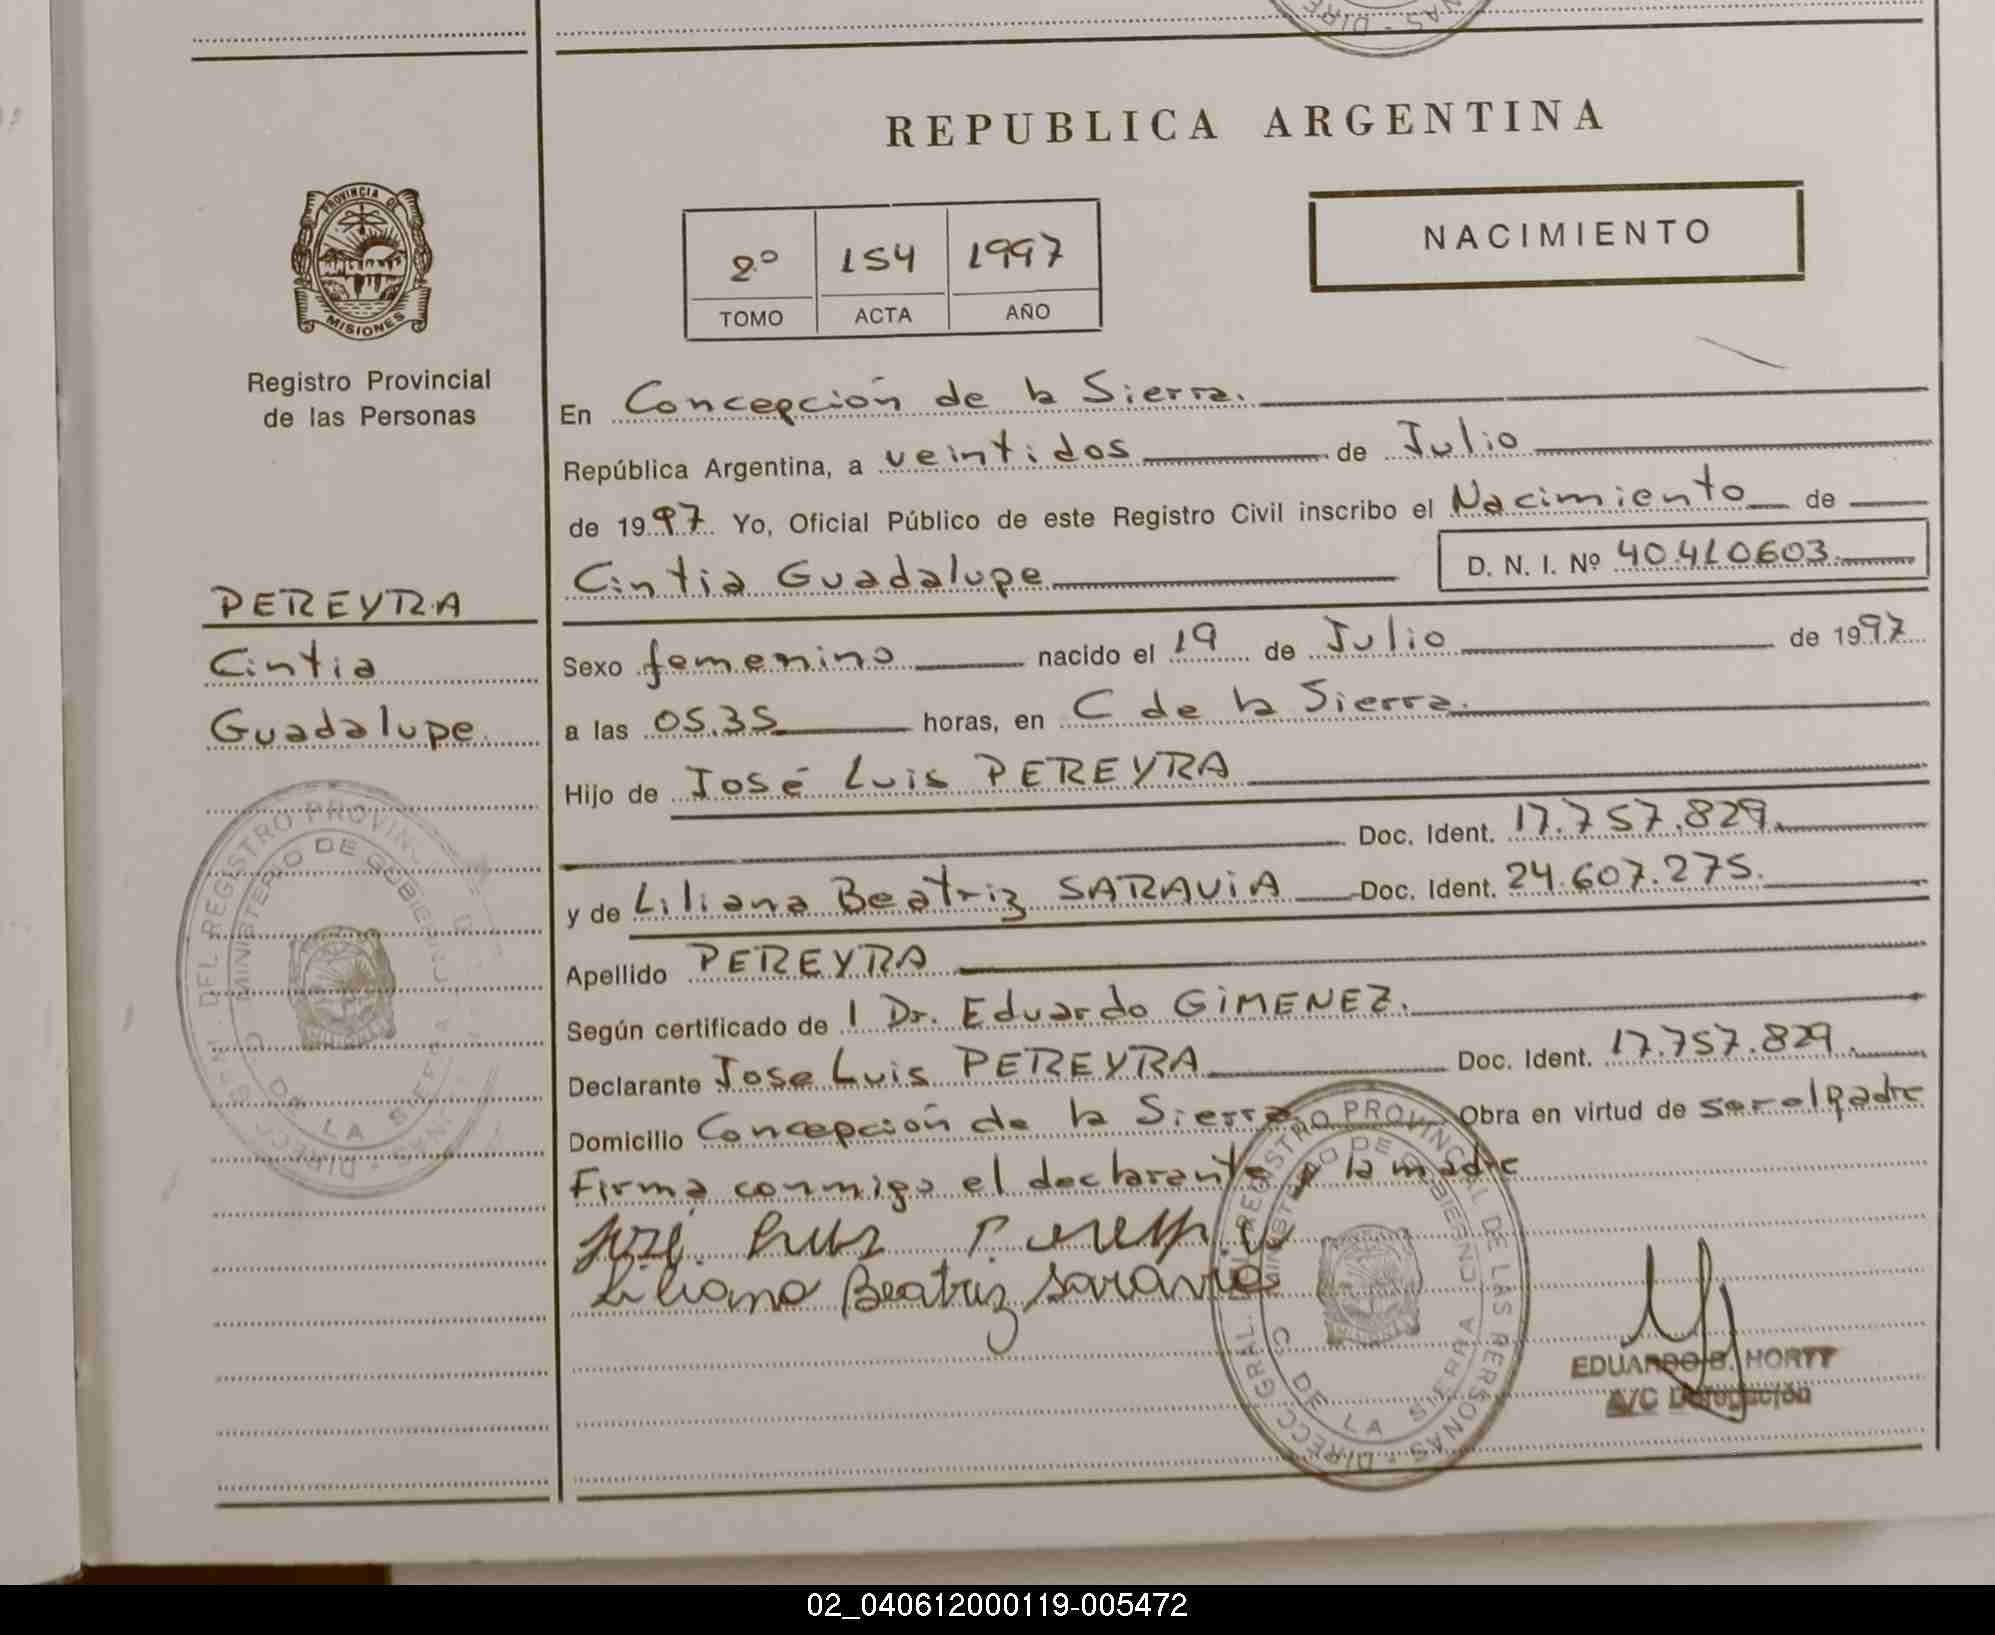 REPUBLICA ARGENTINA
NACIMIENTO
2º 154 1997
TOMO ACTA AÑO
PROVINCIA DE
MISIONES
Registro Provincial
de las Personas
PEREYRA
Cintia
Guadalupe
En Concepción de la Sierra.
República Argentina, a veintidos de Julio
de 1997 Yo, Oficial Público de este Registro Civil inscribo el Nacimiento de
Cintia Guadalupe D. N. I. Nº 40.410603.
Sexo femenino nacido el 19 de Julio de 1997
a las 05.35 horas, en C de la Sierra.
Hijo de José Luis PEREYRA
Doc. Ident. 17.757.829.
y de Liliana Beatriz SARAVIA Doc. Ident. 24.607.275.
Apellido PEREYRA
Según certificado de l Dr. Eduardo GIMENEZ.
Declarante Jose Luis PEREYRA Doc. Ident. 17.757.829.
Domicilio Concepción de la Sierra Obra en virtud de ser el padre
Firma conmigo el declarante y la madre
José Luis Pereyra
Liliana Beatriz Saravia
DIRECC. GRAL. DEL REGISTRO PROVINCIAL DE LAS PERSONAS
MINISTERIO DE GOBIERNO
C. DE LA SIERRA
EDUARDO B. HORTT
A/C Delegación
02_040612000119-005472